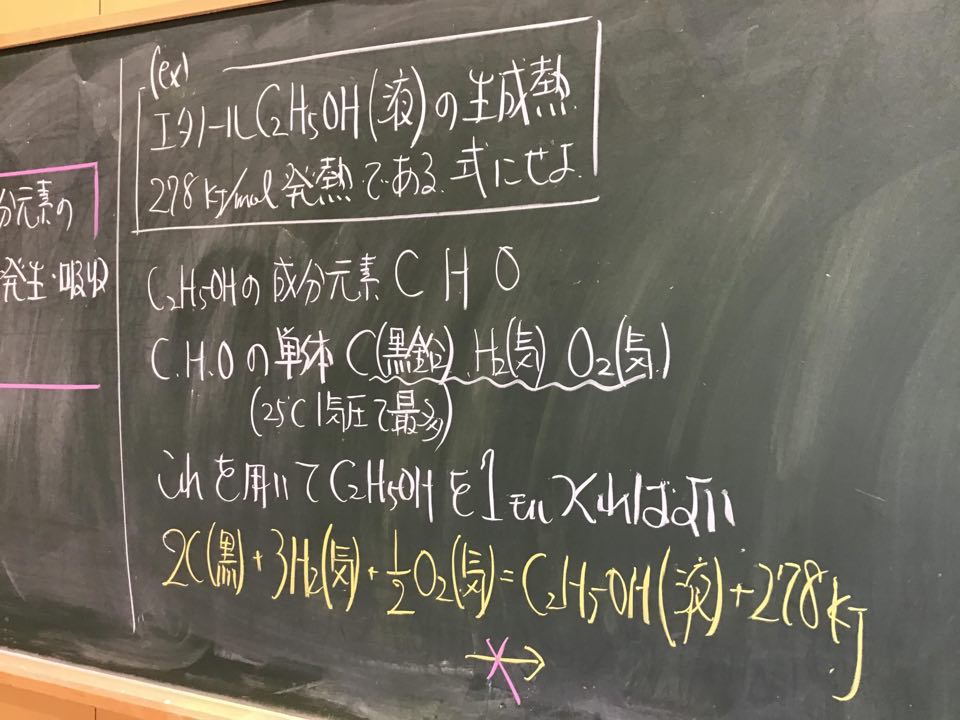 分元素の
発生・吸収
(ex)
エタノール C₂H₅OH(液)の生成熱
278 kJ/mol 発熱である. 式にせよ.
C₂H₅OHの成分元素 C H O
C.H.O の単体 C(黒鉛) H₂(気) O₂(気)
(25℃ 1気圧で最多)
これを用いて C₂H₅OH を 1 モルつくればよい
2C(黒) + 3H₂(気) + 1/2 O₂(気) = C₂H₅OH(液) + 278 kJ